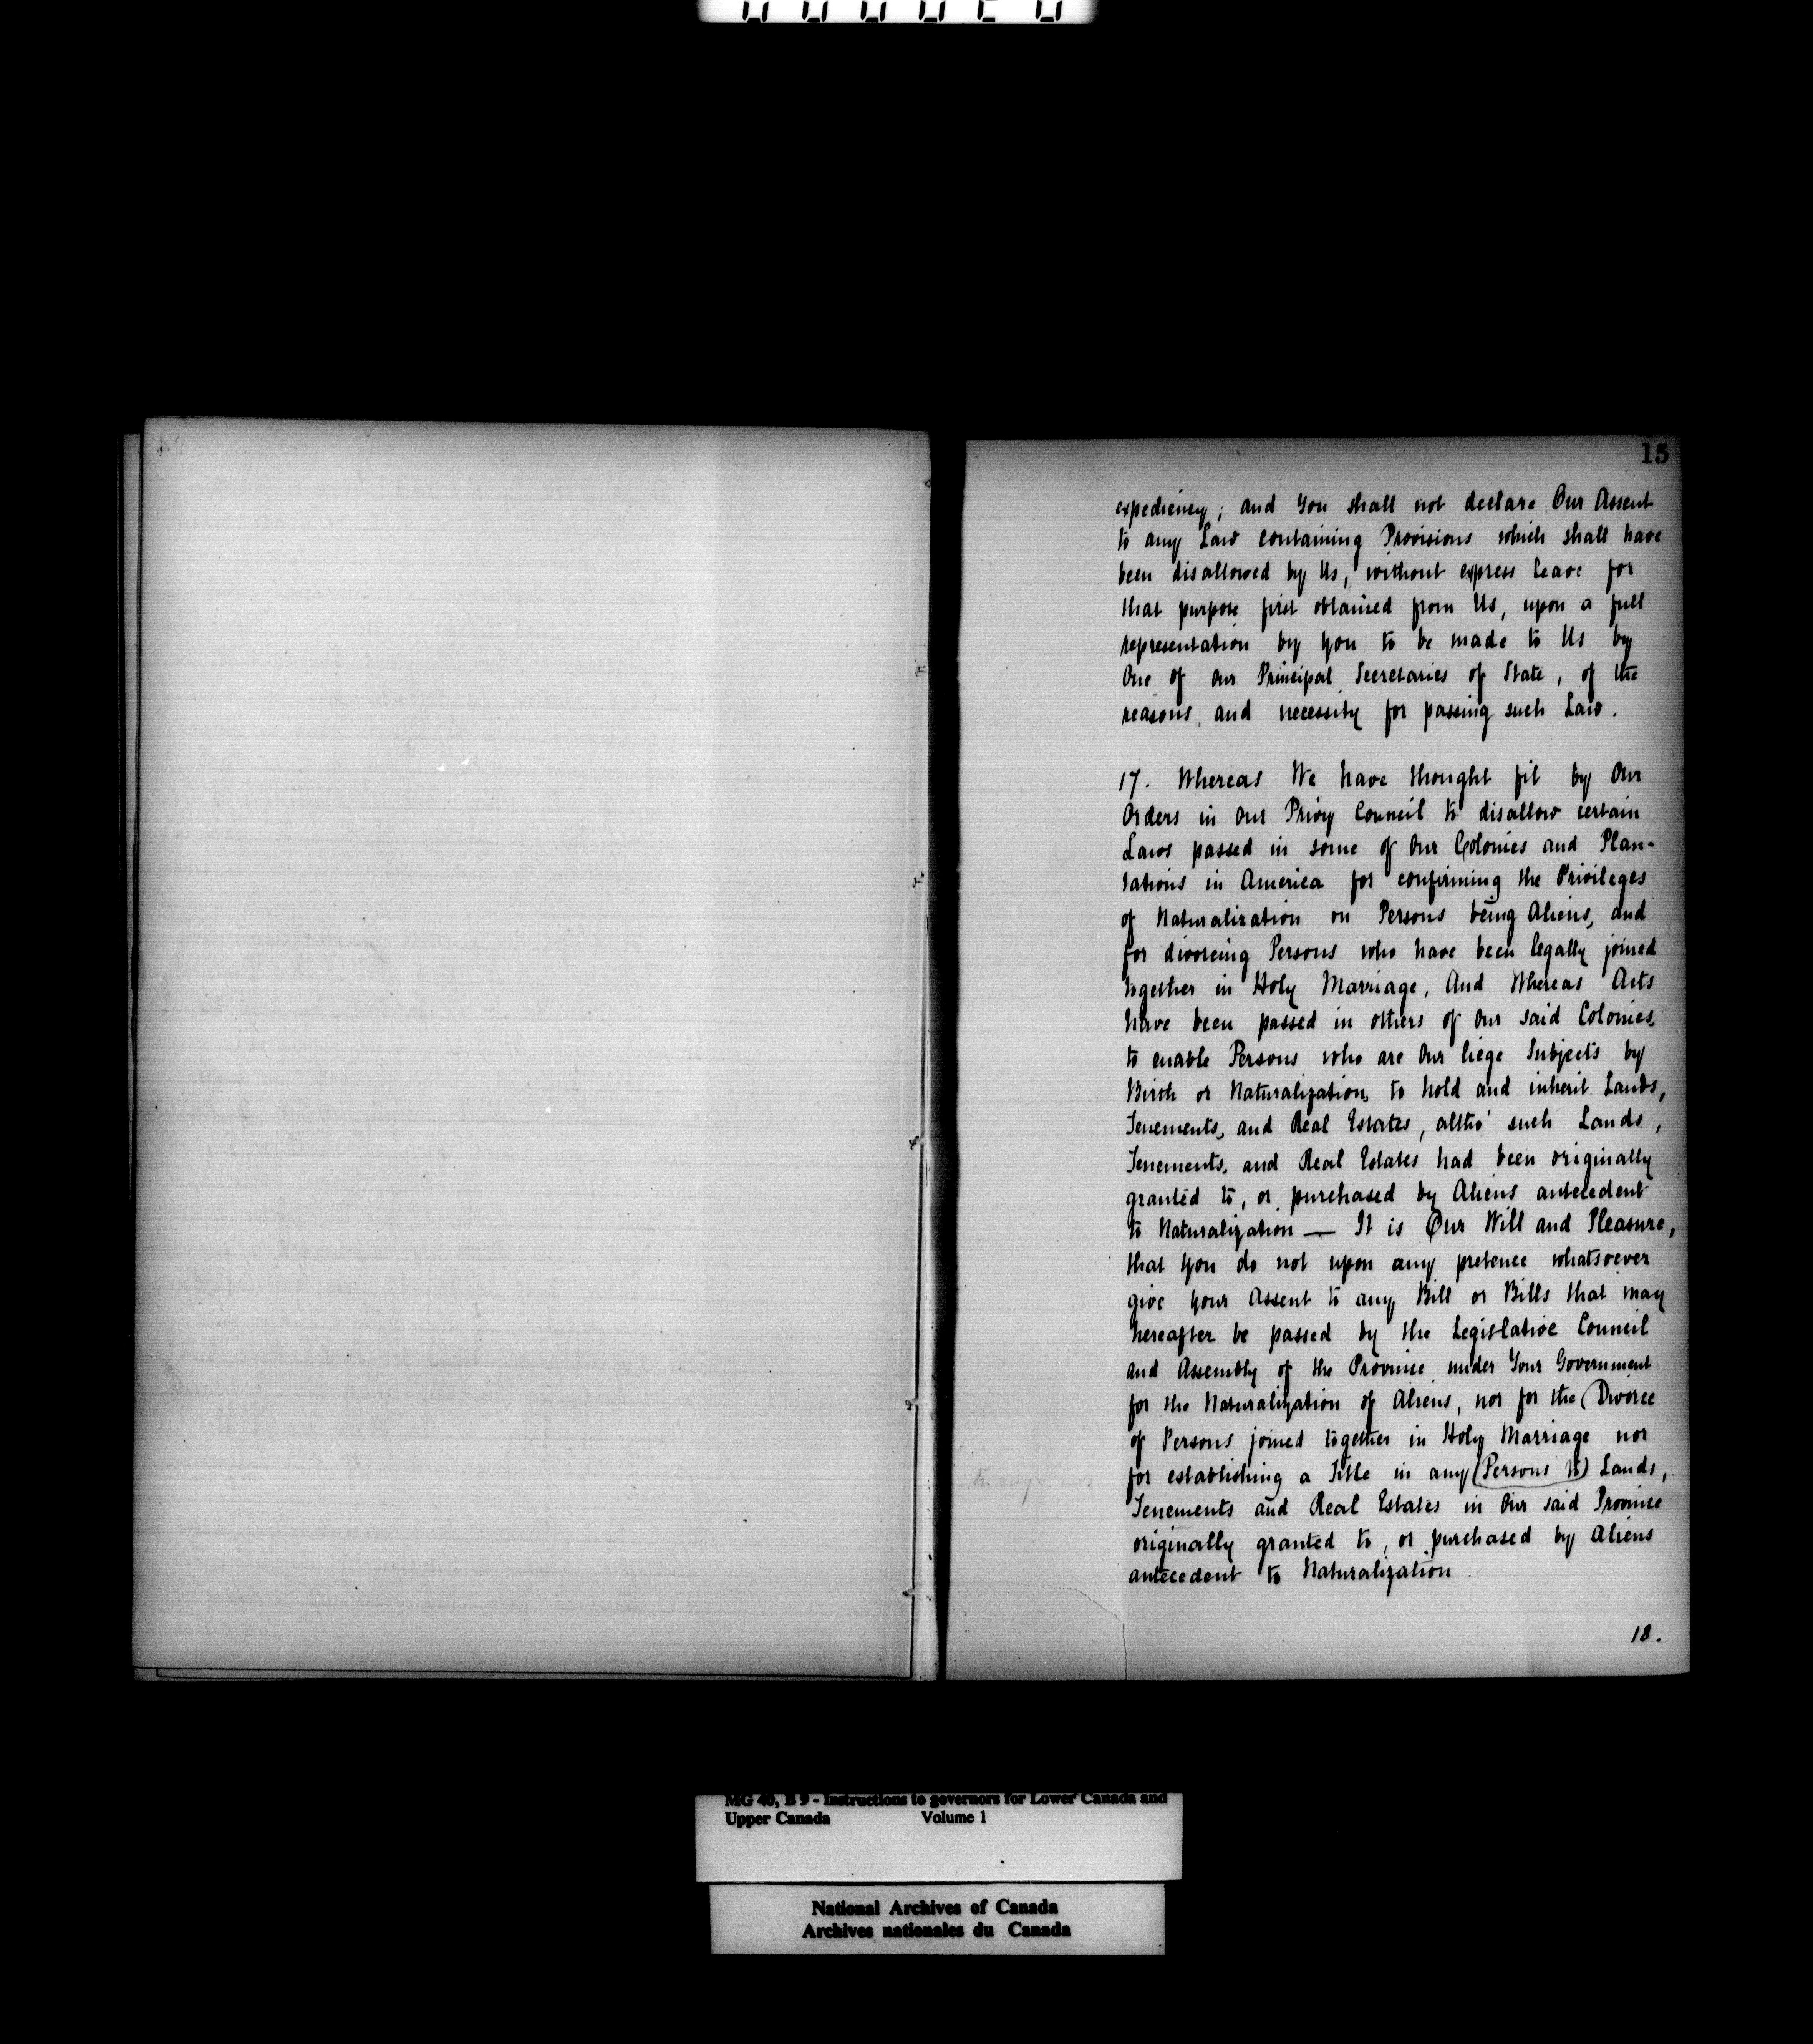 15
expediency; and You shall not declare Our Assent
to any Law containing Provisions which shall have
been disallowed by Us, without express leave for
that purpose first obtained from Us, upon a full
representation by you to be made to Us by
One of our Principal Secretaries of State, of the
reasons and necessity for passing such Law.
17. Whereas We have thought fit by Our
Orders in our Privy Council to disallow certain
Laws passed in some of Our Colonies and Plan-
tations in America for confirming the Privileges
of Naturalization on Persons being Aliens, and
for divorcing Persons who have been legally joined
together in Holy Marriage, And Whereas Acts
have been passed in others of Our said Colonies,
to enable Persons who are Our liege Subjects by
Birth or Naturalization, to hold and inherit Lands,
Tenements, and Real Estates, altho' such Lands,
Tenements, and Real Estates had been originally
granted to, or purchased by Aliens antecedent
to Naturalization — It is Our Will and Pleasure,
that you do not upon any pretence whatsoever
give your Assent to any Bill or Bills that may
hereafter be passed by the Legislative Council
and Assembly of the Province under Your Government
for the Naturalization of Aliens, nor for the (Divorce
of Persons joined together in Holy Marriage nor
for establishing a Title in any (Persons to) Lands,
Tenements and Real Estates in Our said Province
originally granted to, or purchased by Aliens
antecedent to Naturalization.
18.
MG 40, B 9 - Instructions to governors for Lower Canada and
Upper Canada Volume 1
National Archives of Canada
Archives nationales du Canada